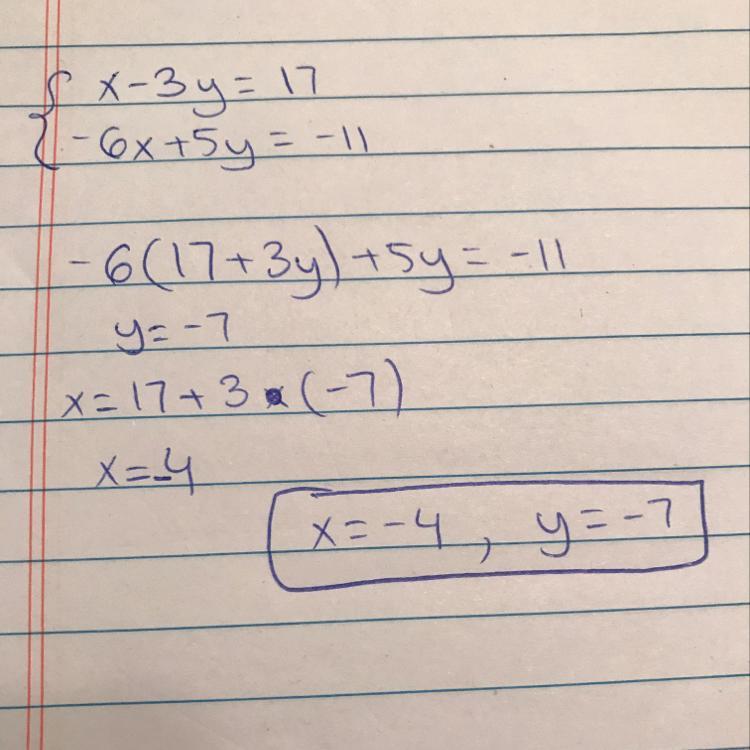 x-3y= 17
-6x+5y = -11
-6(17+3y)+5y= -11
y= -7
x=17+3•(-7)
x=-4
x=-4 , y=-7